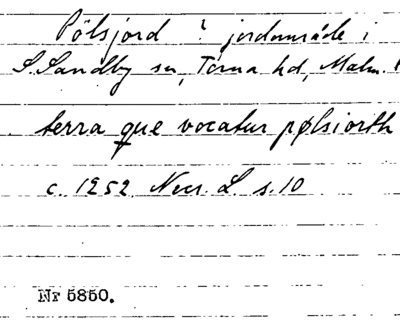 Pölsjord ? jordområde i
S. Sandby sn, Torna hd, Malm. l
terra que vocatur pølsiorth
c. 1252 Necr. L s. 10
Nr 5850.